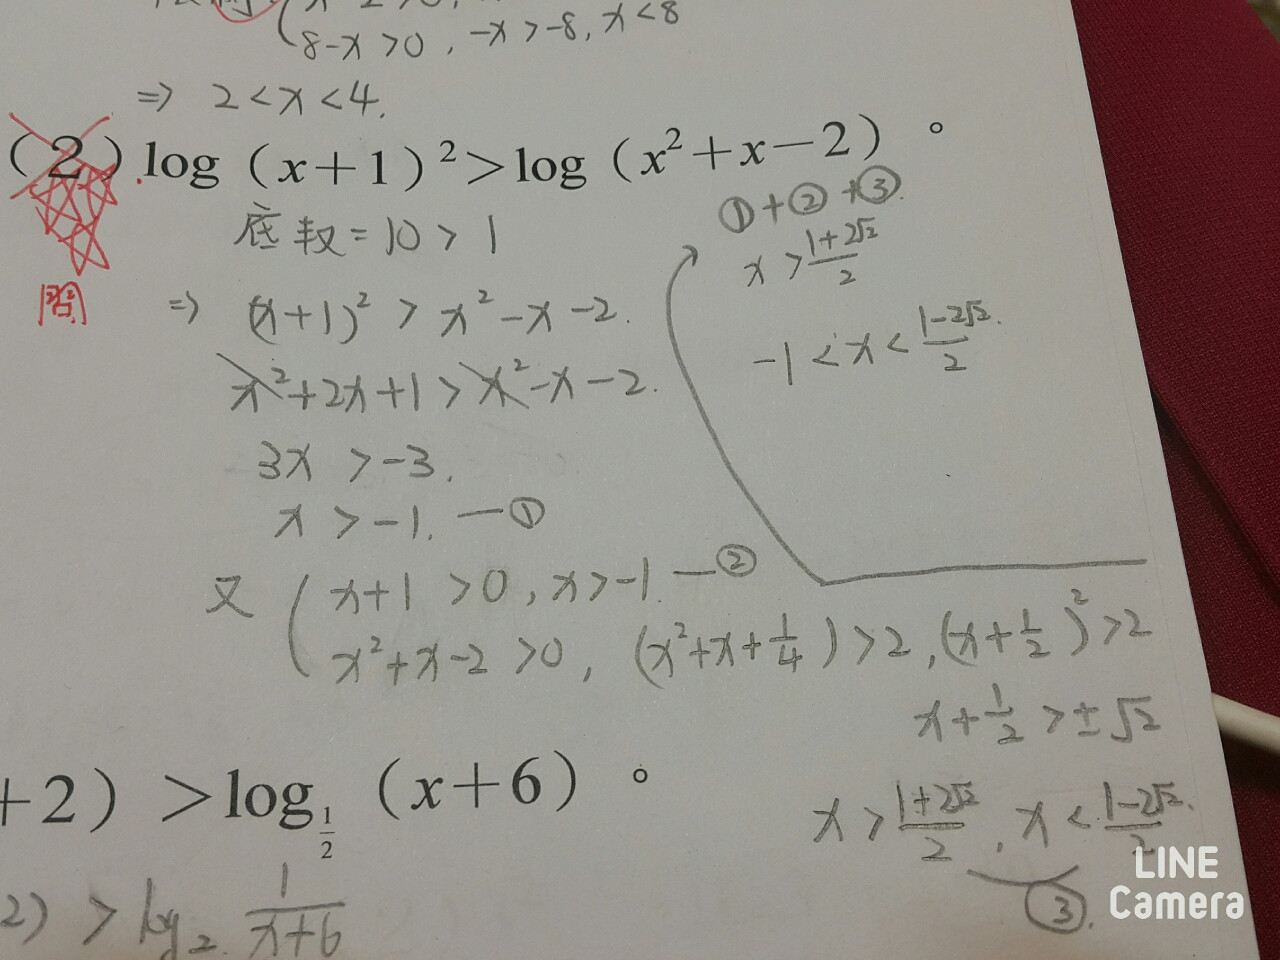 8-x>0, -x>-8, x<8
⇒ 2<x<4.
(2) log (x+1)²>log (x²+x-2)。
底数=10>1
問
⇒ (x+1)²>x²-x-2.
x²+2x+1>x²-x-2.
3x>-3.
x>-1. —①
①+②+③.
x>\frac{1+2√2}{2}
-1<x<\frac{1-2√2}{2}.
又 x+1>0, x>-1. —②
x²+x-2>0, (x²+x+\frac{1}{4})>2, (x+\frac{1}{2})²>2
x+\frac{1}{2}>±√2
x>\frac{1+2√2}{2}, x<\frac{1-2√2}{2}.
③.
+2)>log_{\frac{1}{2}} (x+6)。
2)>log₂ \frac{1}{x+6}
LINE
Camera